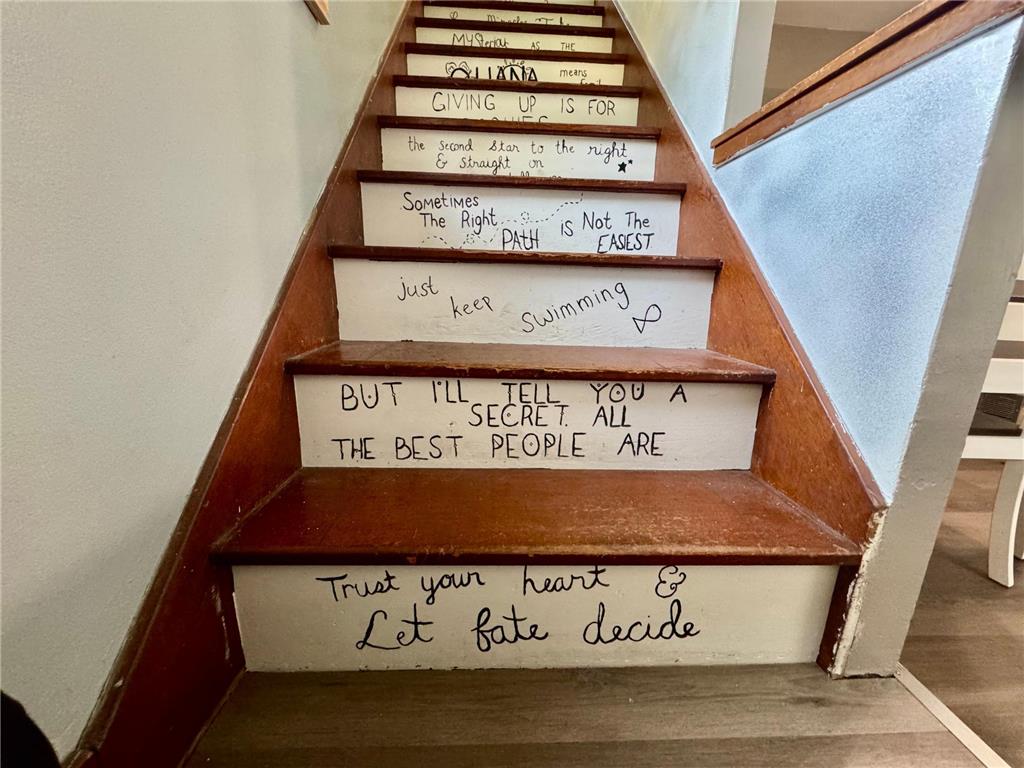 Miracles Take
MYSTERIOUS AS THE
OHANA means
GIVING UP IS FOR
the second star to the right
& straight on
Sometimes
The Right is Not The
PATH EASIEST
just keep swimming
BUT I'LL TELL YOU A
SECRET. ALL
THE BEST PEOPLE ARE
Trust your heart &
Let fate decide